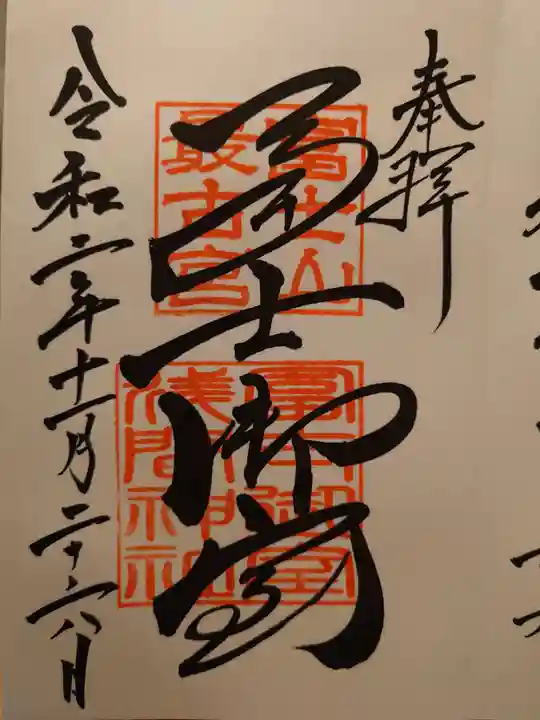 奉拝
冨士山
最古宮
冨士御室
冨士御室
浅間神社
令和二年十一月二十六日